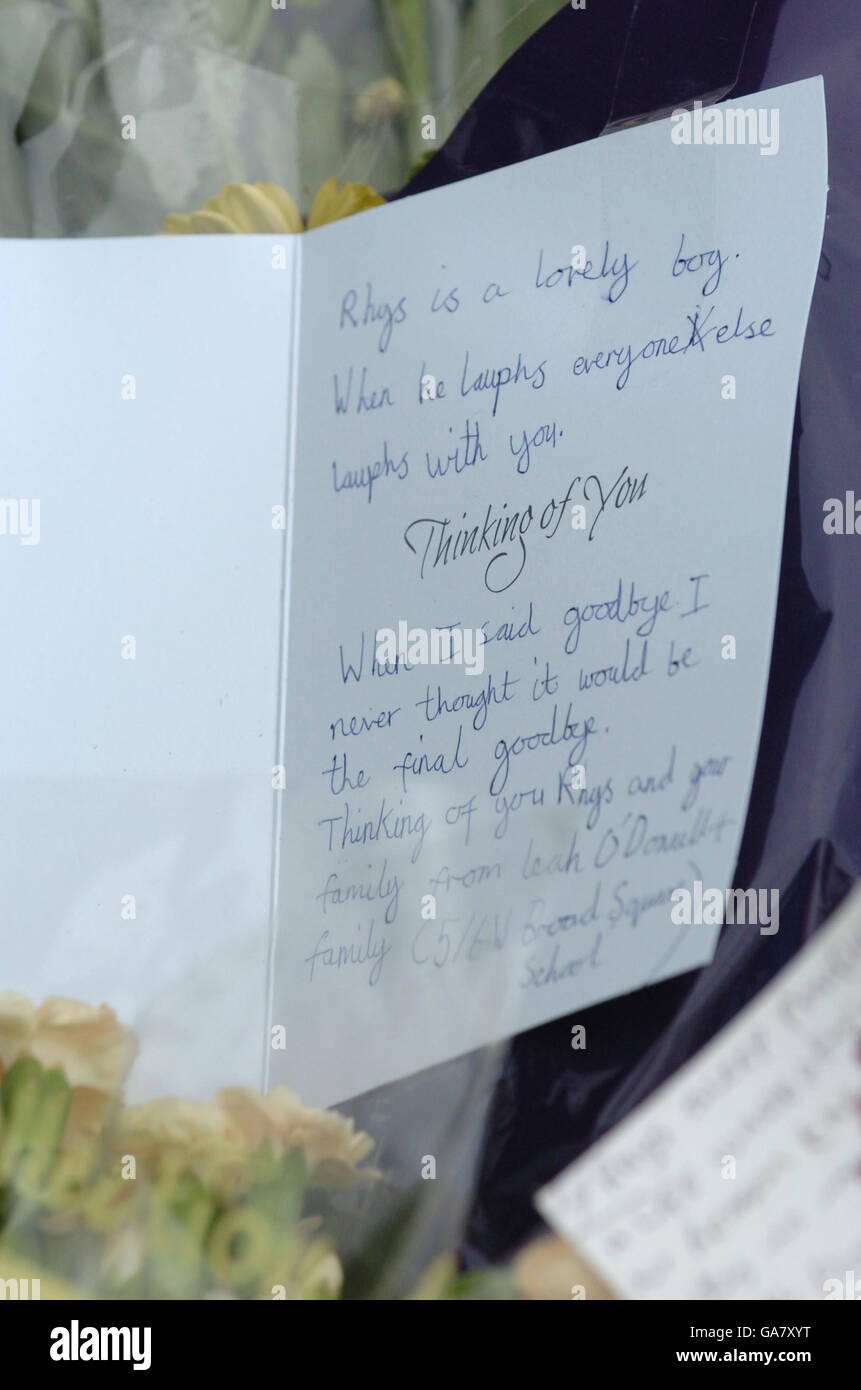 Rhys is a lovely boy.
When he lauphs everyone else
lauphs with you.
Thinking of You
When I said goodbye I
never thought it would be
the final goodbye.
Thinking of you Rhys and your
family from Leah O'Donnell +
family (5/6W Broad Square)
School
alamy
Image ID: GA7XYT
www.alamy.com